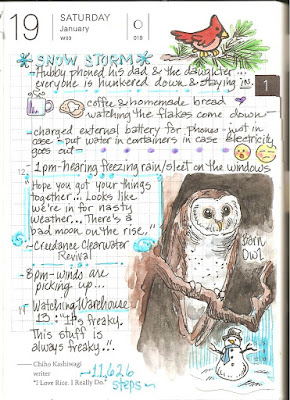 19 SATURDAY
January
W03 019
1
* SNOW STORM *
- Hubby phoned his dad & the daughter...
everyone is hunkered down & staying in.
coffee & homemade bread
watching the flakes come down
- charged external battery for phones - just in
case - put water in containers in case electricity
goes out
12
1pm - hearing freezing rain/sleet on the windows
Hope you got your things
together... Looks like
we're in for nasty
weather... There's a
bad moon on the rise..."
~ Creedance Clearwater
Revival
Barn
Owl
- 8pm - winds are
picking up...
- Watching Warehouse
13. "It's freaky.
This stuff is
always freaky..."
— Chiho Kashiwagi
writer
"I Love Rice. I Really Do."
~11,626
steps~